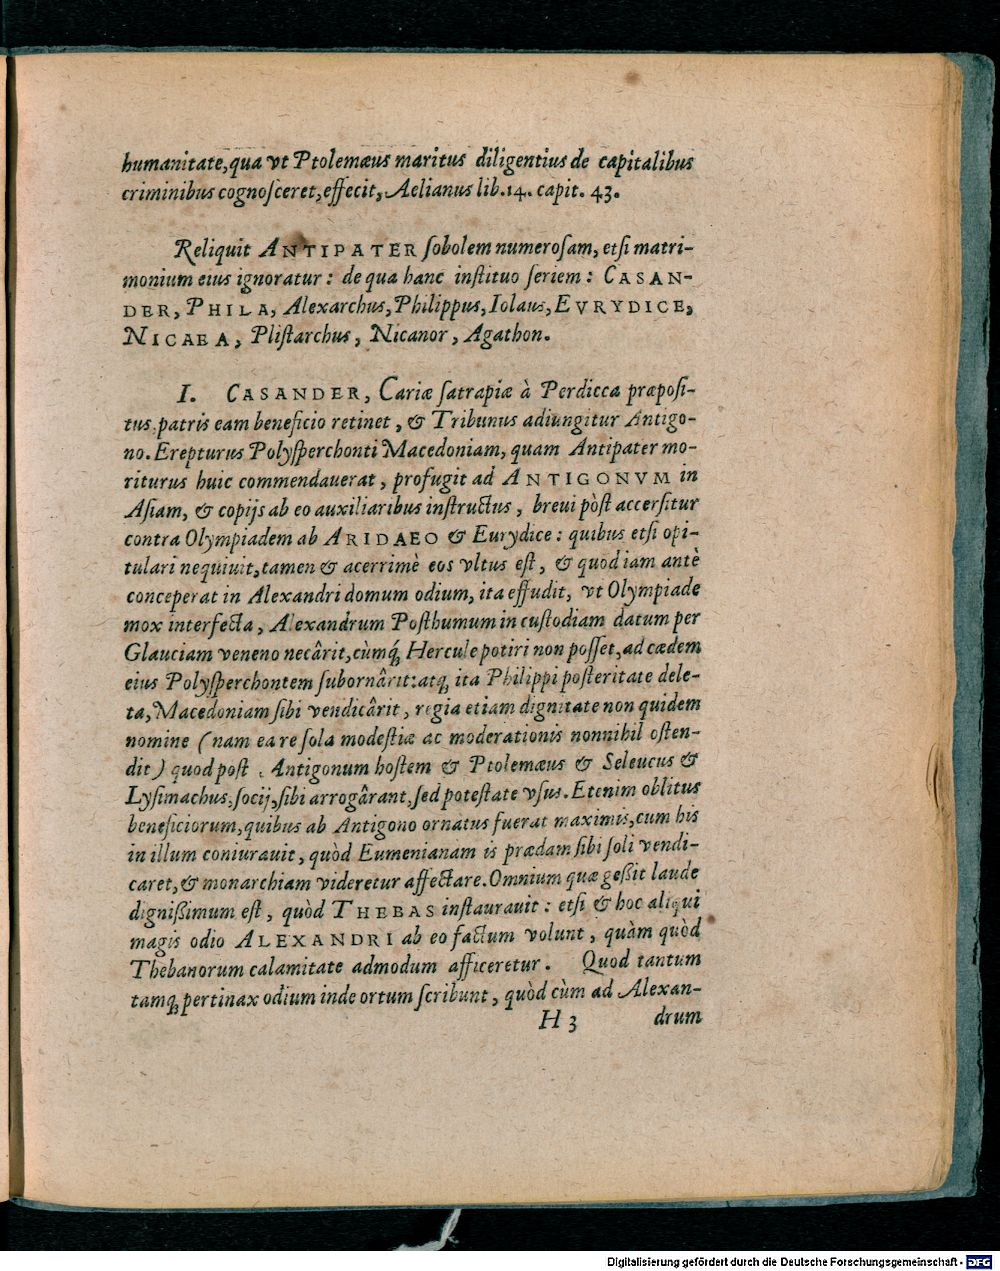 humanitate, qua vt Ptolemæus maritus diligentius de capitalibus
criminibus cognosceret, effecit, Aelianus lib. 14. capit. 43.
Reliquit ANTIPATER sobolem numerosam, etsi matri-
monium eius ignoratur: de qua hanc instituo seriem: CASAN-
DER, PHILA, Alexarchus, Philippus, Iolaus, EVRYDICE,
NICAEA, Plistarchus, Nicanor, Agathon.
I. CASANDER, Cariæ satrapiæ à Perdicca præposi-
tus, patris eam beneficio retinet, & Tribunus adiungitur Antigo-
no. Erepturus Polysperchonti Macedoniam, quam Antipater mo-
riturus huic commendauerat, profugit ad ANTIGONVM in
Asiam, & copijs ab eo auxiliaribus instructus, breui pòst accersitur
contra Olympiadem ab ARIDAEO & Eurydice: quibus etsi opi-
tulari nequiuit, tamen & acerrimè eos vltus est, & quod iam antè
conceperat in Alexandri domum odium, ita effudit, vt Olympiade
mox interfecta, Alexandrum Posthumum in custodiam datum per
Glauciam veneno necârit, cùmq́; Hercule potiri non posset, ad cædem
eius Polysperchontem subornârit: atq; ita Philippi posteritate dele-
ta, Macedoniam sibi vendicârit, regia etiam dignitate non quidem
nomine (nam ea re sola modestiæ ac moderationis nonnihil osten-
dit) quod post Antigonum hostem & Ptolemæus & Seleucus &
Lysimachus, socij, sibi arrogârant, sed potestate vsus. Etenim oblitus
beneficiorum, quibus ab Antigono ornatus fuerat maximis, cum his
in illum coniurauit, quòd Eumenianam is prædam sibi soli vendi-
caret, & monarchiam videretur affectare. Omnium quæ geßit laude
dignißimum est, quòd THEBAS instaurauit: etsi & hoc aliqui
magis odio ALEXANDRI ab eo factum volunt, quàm quòd
Thebanorum calamitate admodum afficeretur. Quod tantum
tamq; pertinax odium inde ortum scribunt, quòd cùm ad Alexan-
H 3 drum
Digitalisierung gefördert durch die Deutsche Forschungsgemeinschaft - DFG